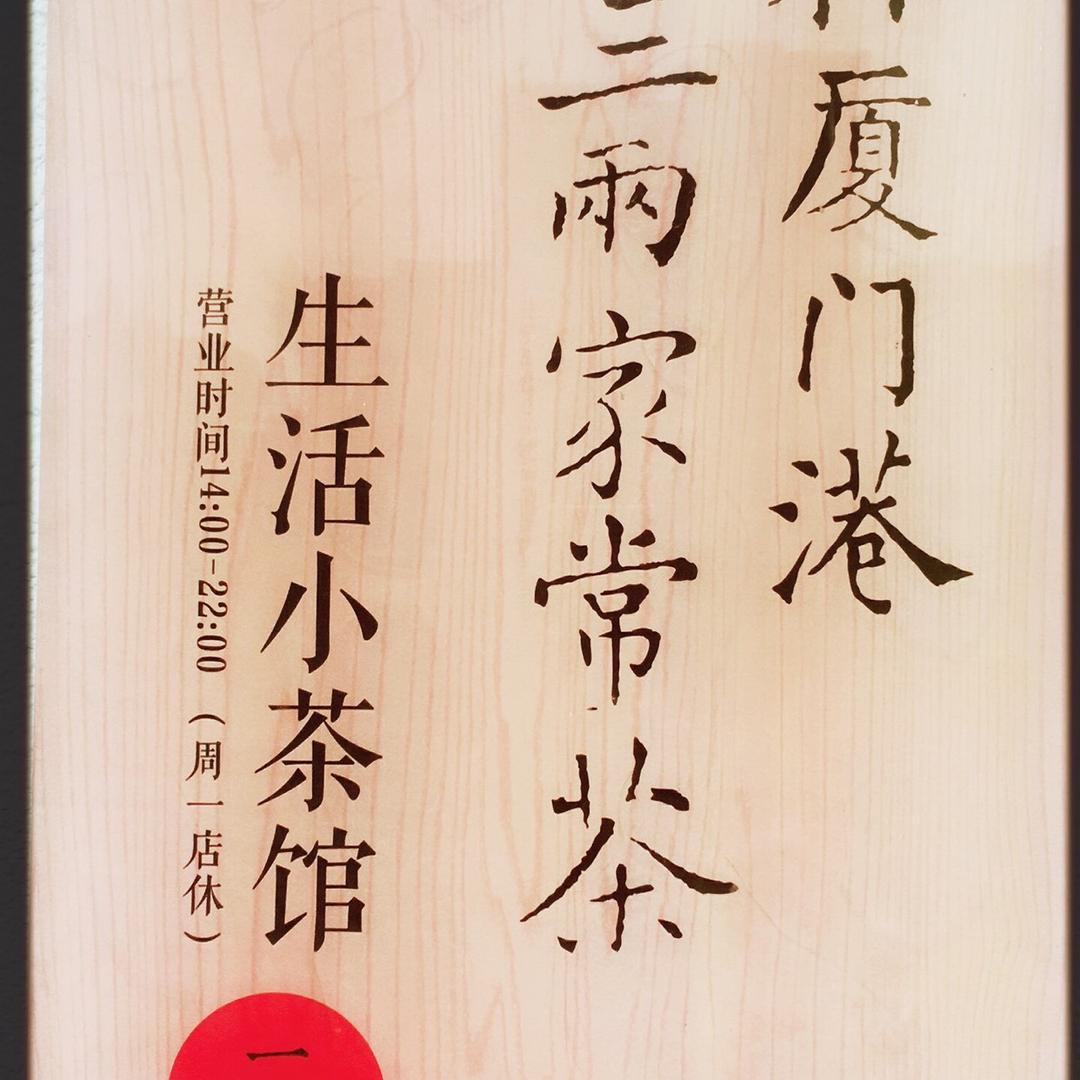 厦门港
二兩家常茶
生活小茶馆
营业时间14:00-22:00（周一店休）
一